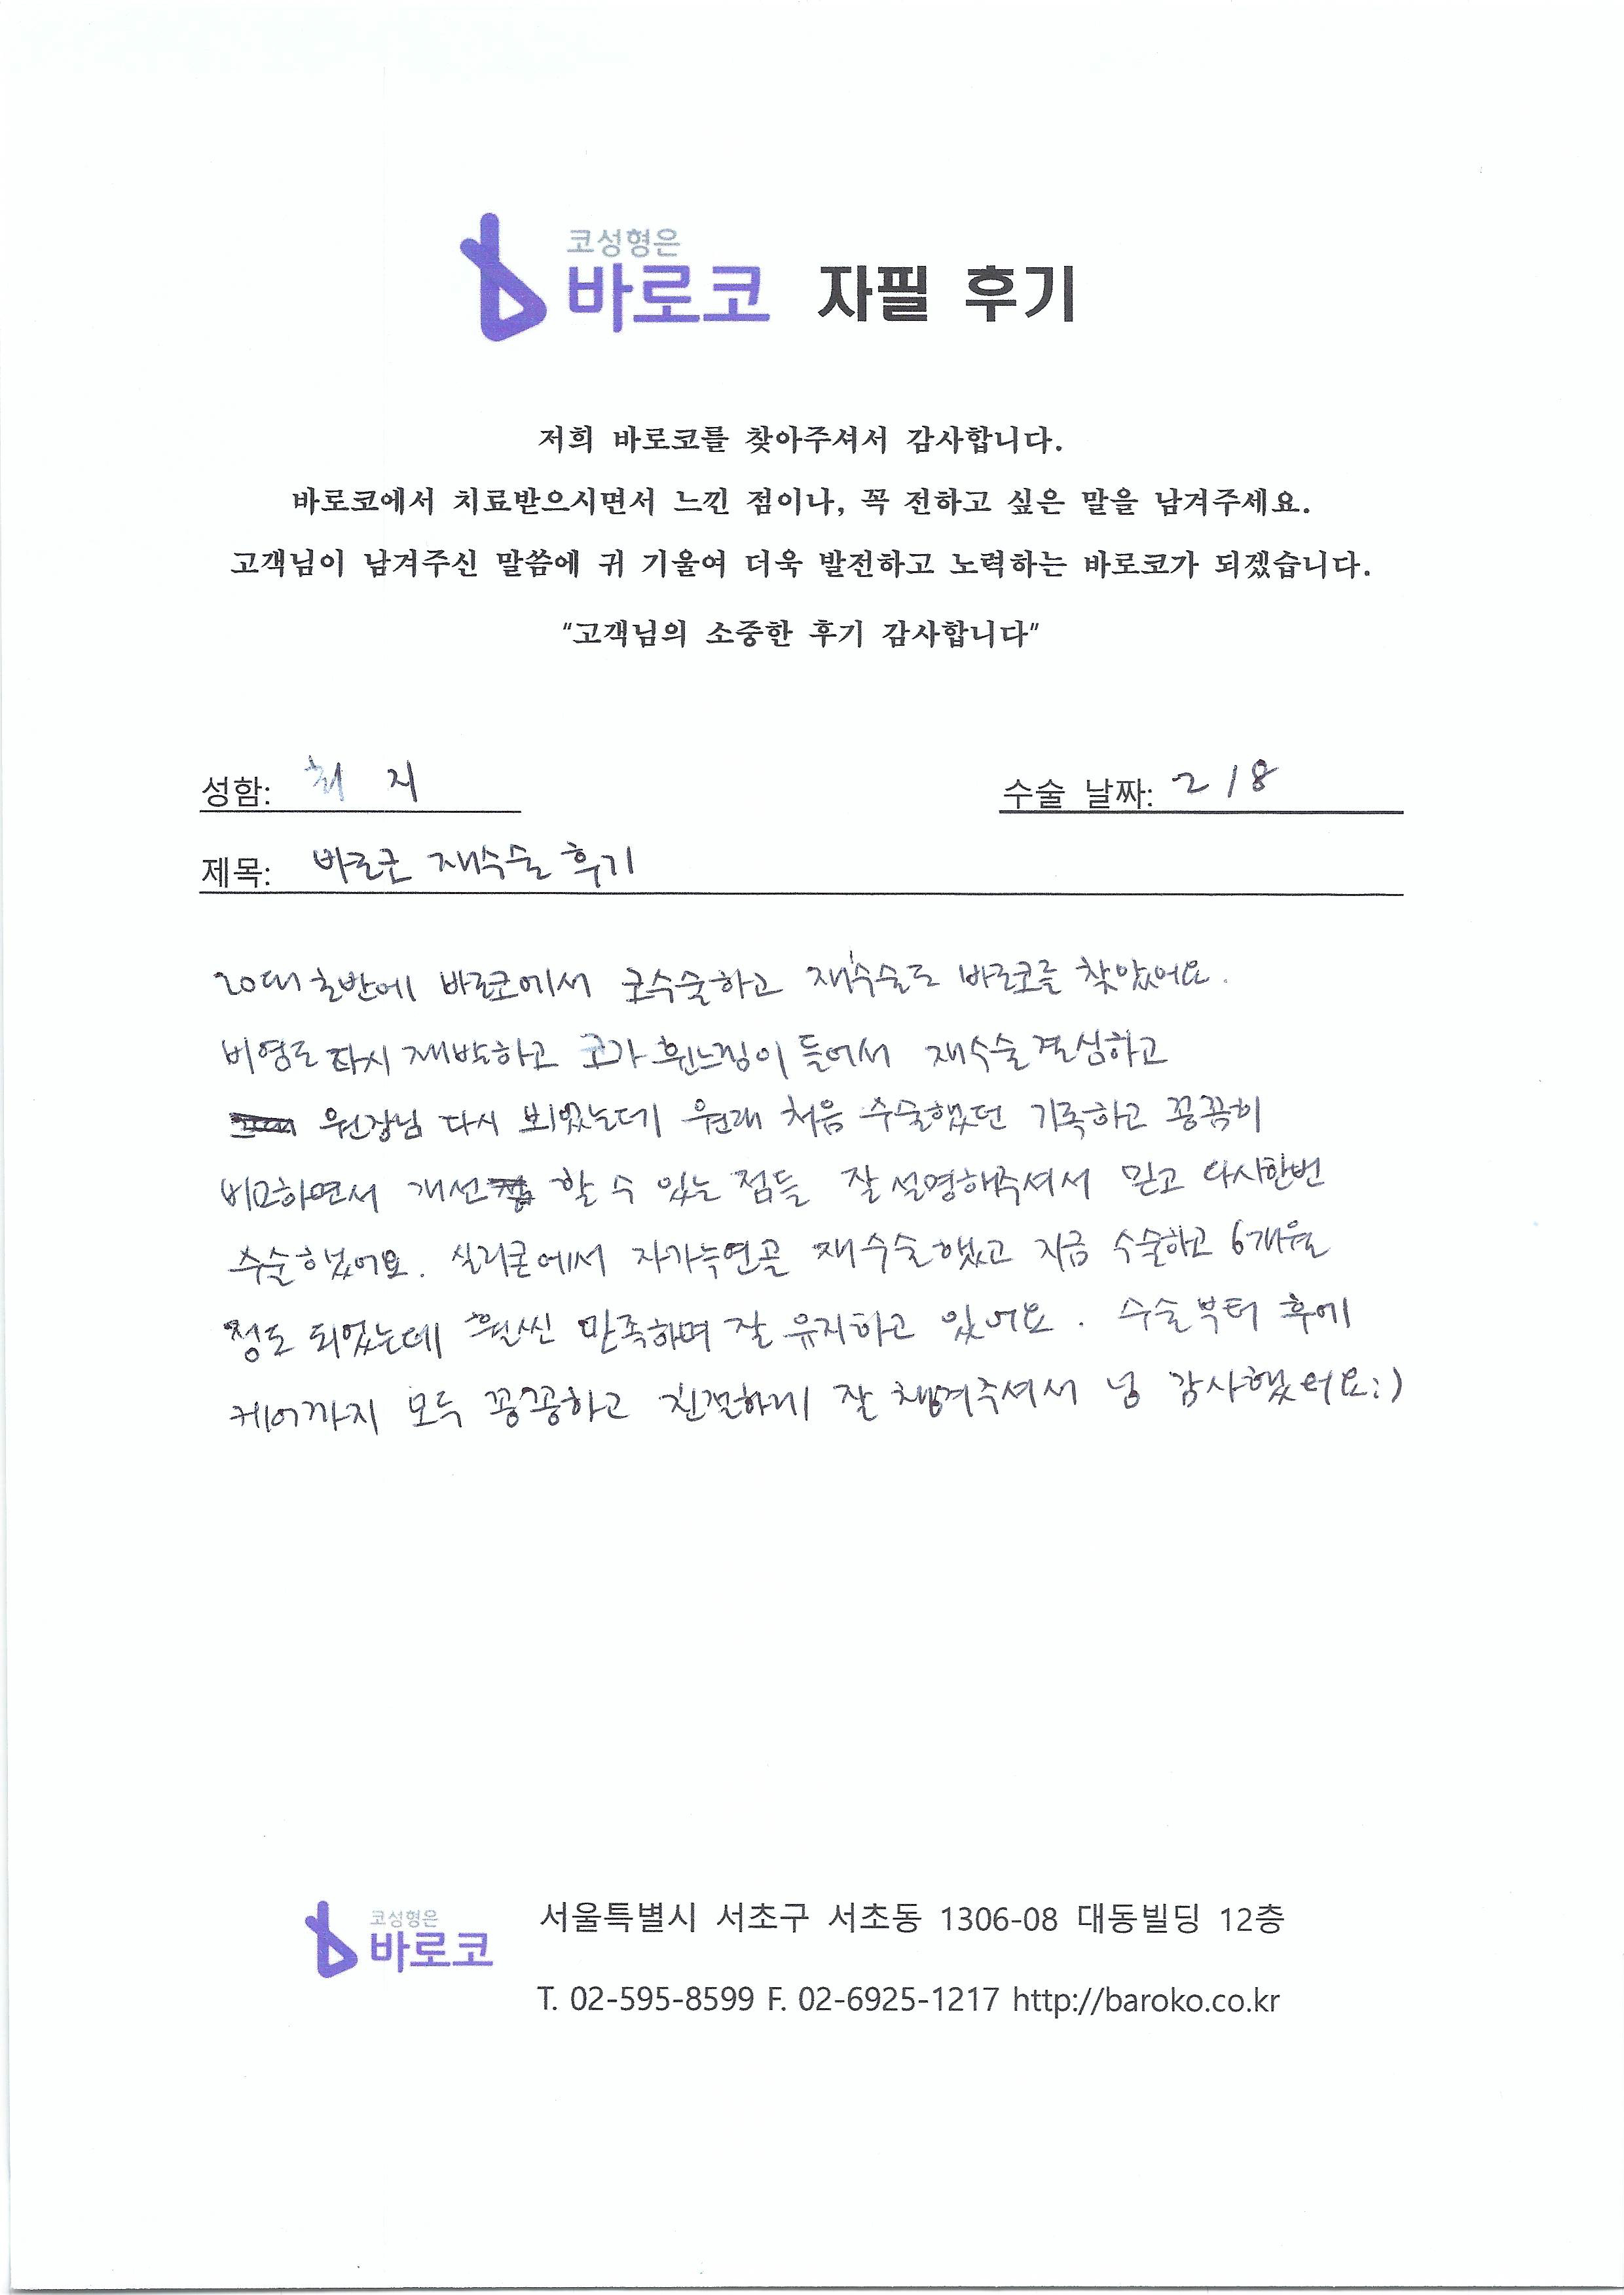 코성형은
바로코 자필 후기
저희 바로코를 찾아주셔서 감사합니다.
바로코에서 치료받으시면서 느낀 점이나, 꼭 전하고 싶은 말을 남겨주세요.
고객님이 남겨주신 말씀에 귀 기울여 더욱 발전하고 노력하는 바로코가 되겠습니다.
"고객님의 소중한 후기 감사합니다"
성함: 최 지 수술 날짜: 2/8
제목: 바로코 재수술 후기
20대 초반에 바로코에서 코수술하고 재수술도 바로코를 찾았어요.
비염도 다시 재발하고 코가 휜느낌이 들어서 재수술결심하고
원장님 다시 뵈었는데 원래 처음 수술했던 기록하고 꼼꼼히
비교하면서 개선 할 수 있는 점들 잘 설명해주셔서 믿고 다시한번
수술했어요. 실리콘에서 자가늑연골 재수술했고 지금 수술하고 6개월
정도 되었는데 훨씬 만족하며 잘 유지하고 있어요. 수술부터 후에
케어까지 모두 꼼꼼하고 친절하게 잘 챙겨주셔서 넘 감사했어요:)
코성형은
바로코
서울특별시 서초구 서초동 1306-08 대동빌딩 12층
T. 02-595-8599 F. 02-6925-1217 http://baroko.co.kr